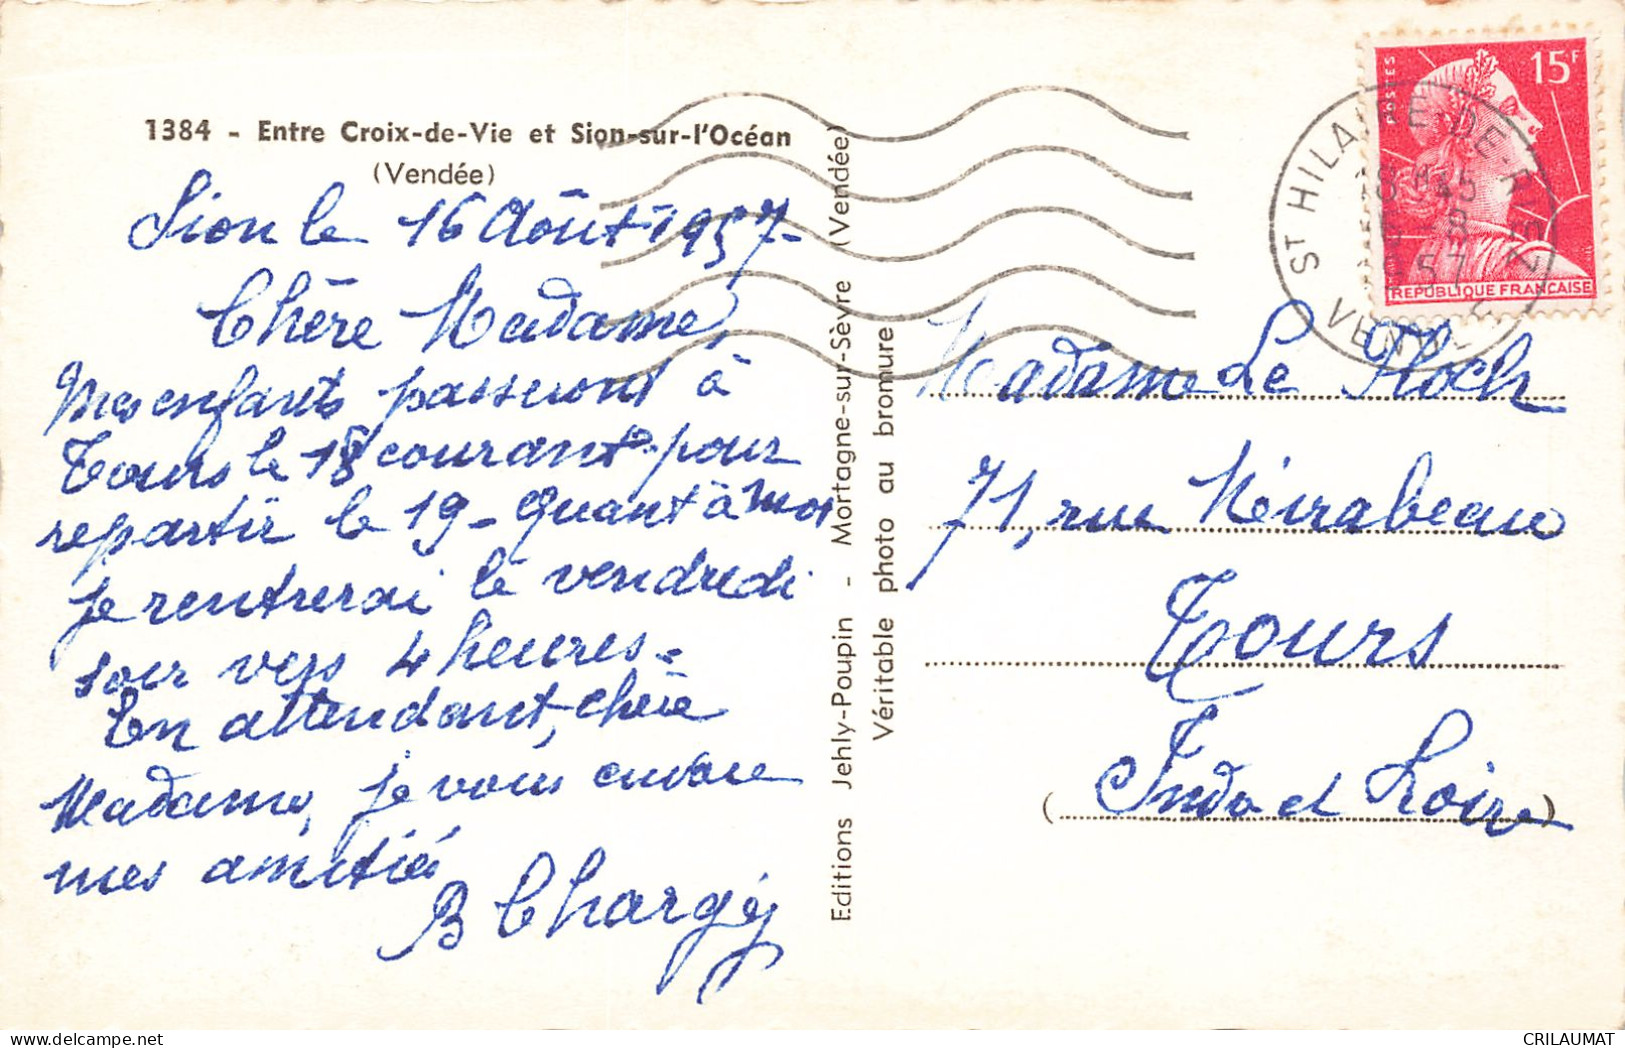 1384 - Entre Croix-de-Vie et Sion-sur-l'Océan
(Vendée)
Sion le 16 Août 1957-
Chère Madame,
Mes enfants passeront à
Tours le 18 courant pour
repartir le 19 - Quant à moi
je rentrerai le vendredi
soir vers 4 heures.
En attendant, chère
Madame, je vous envoie
mes amitiés
B Chargé
Editions Jehly-Poupin - Mortagne-sur-Sèvre (Vendée)
Véritable photo au bromure
POSTES
15F
REPUBLIQUE FRANCAISE
ST HILAIRE-DE-RIEZ
VENDEE
18H45
-8
1957
Madame Le Floch
71, rue Mirabeau
Tours
(Indre et Loire)
CRILAUMAT